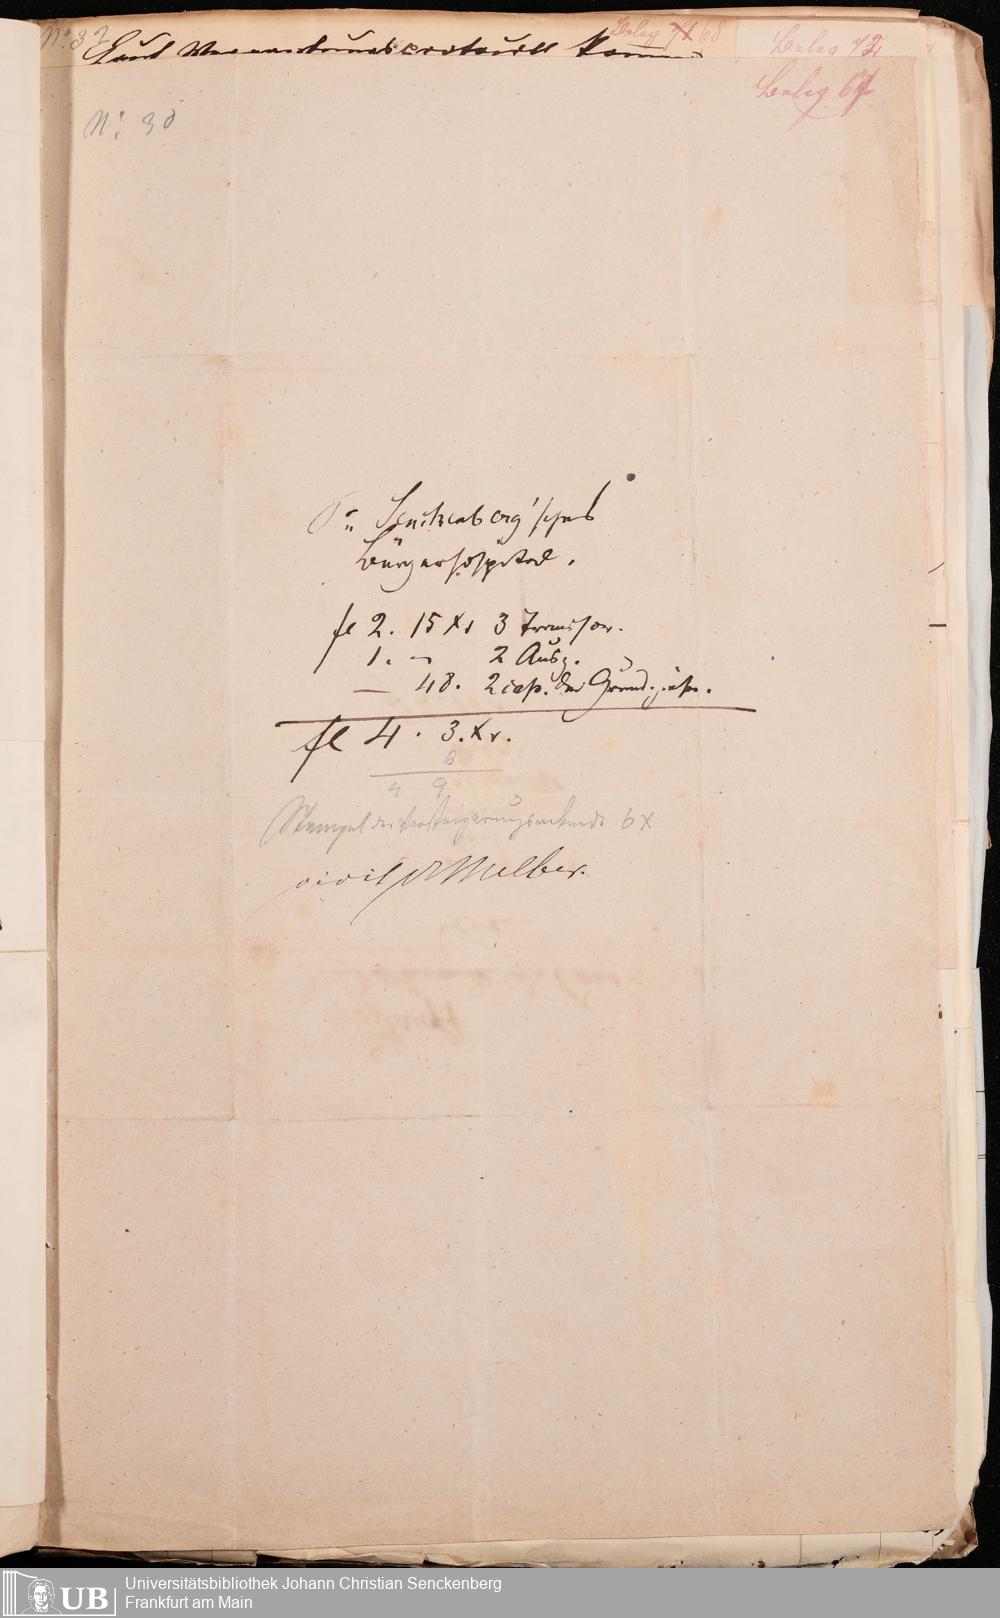 No: 32
Beleg 71 68
Beleg 72
Laut
Beleg 67
No: 30
Dr. Senckenberg'sches
Bürgerhospital.
fl 2. 15 Xr 3 Transfer.
1. - 2 Ausz.
— 48. 2 cop. der
fl 4. 3. Xr.
6
4 9
Stempel der Versteigerungsurkunde 6 x
vidit Dr Melber.
UB
Universitätsbibliothek Johann Christian Senckenberg
Frankfurt am Main